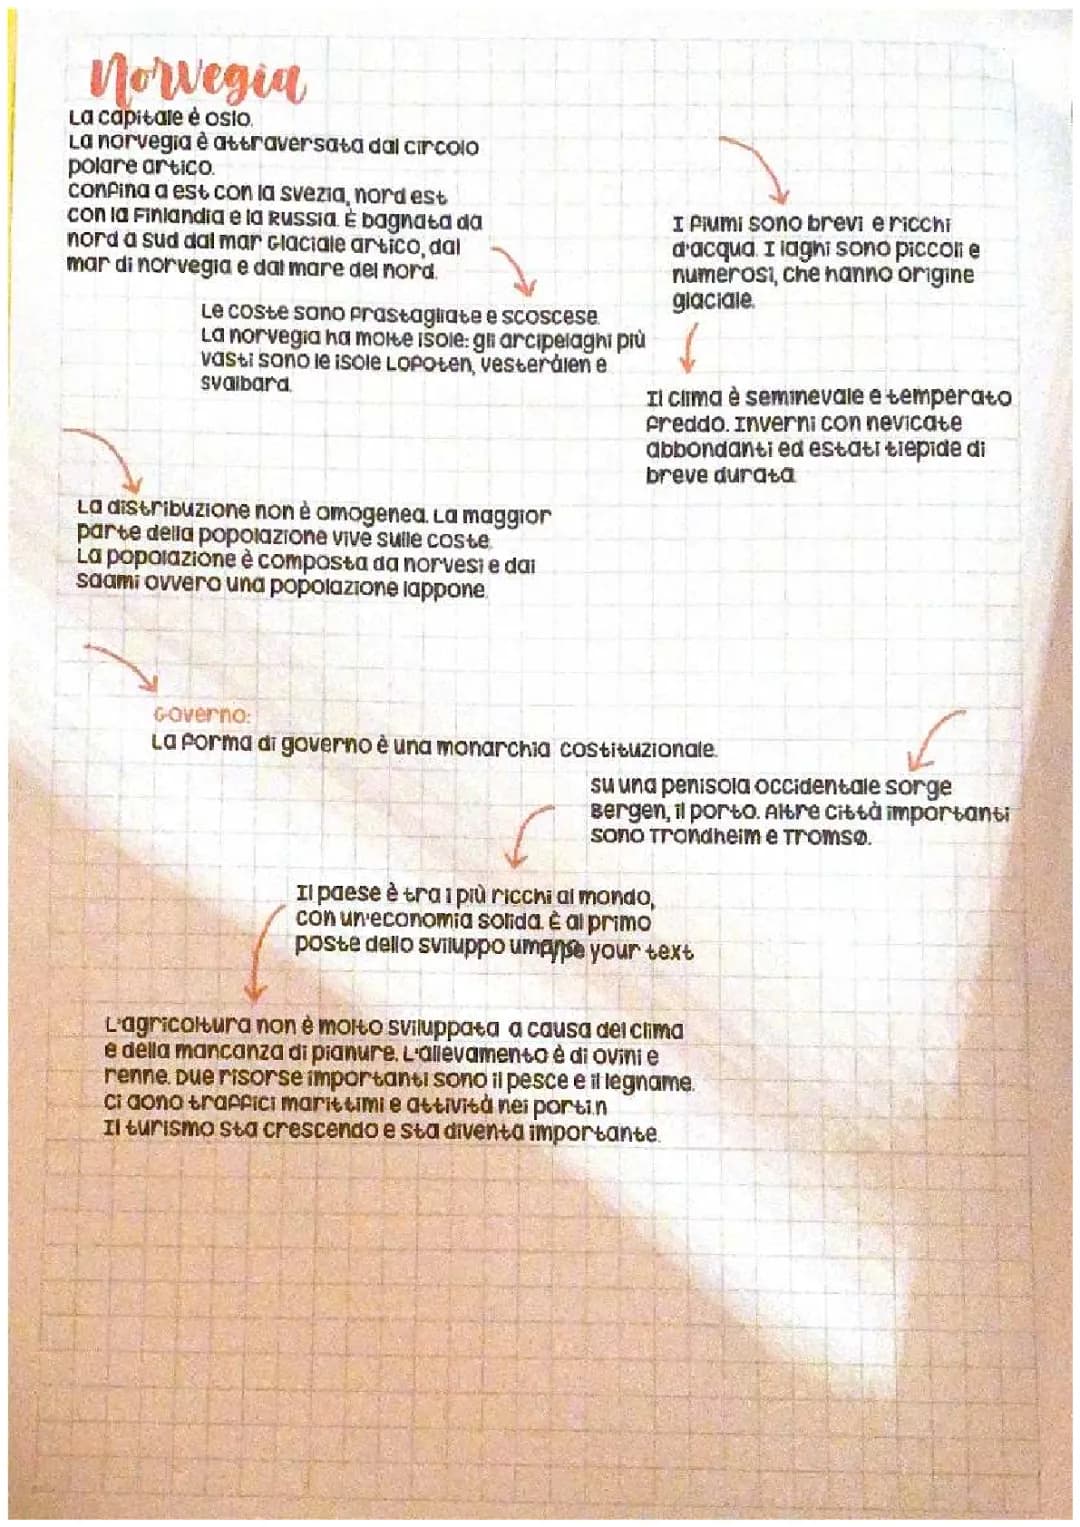 Norvegia
La capitale è oslo.
La norvegia è attraversata dal circolo
polare artico.
confina a est con la svezia, nord est
con la Finlandia e la Russia. È bagnata da
nord a sud dal mar Glaciale artico, dal
mar di norvegia e dal mare del nord.
Le coste sono frastagliate e scoscese.
La norvegia ha molte isole: gli arcipelaghi più
vasti sono le isole Lofoten, vesterålen e
svalbard.
I fiumi sono brevi e ricchi
d'acqua. I laghi sono piccoli e
numerosi, che hanno origine
glaciale.
Il clima è seminevale e temperato
freddo. Inverni con nevicate
abbondanti ed estati tiepide di
breve durata
La distribuzione non è omogenea. La maggior
parte della popolazione vive sulle coste.
La popolazione è composta da norvesi e dai
saami ovvero una popolazione lappone.
Governo:
La forma di governo è una monarchia costituzionale.
su una penisola occidentale sorge
Bergen, il porto. Altre città importanti
sono Trondheim e Tromsø.
Il paese è tra i più ricchi al mondo,
con un'economia solida. È al primo
poste dello sviluppo your text
L'agricoltura non è molto sviluppata a causa del clima
e della mancanza di pianure. L'allevamento è di ovini e
renne. Due risorse importanti sono il pesce e il legname.
Ci aono traffici marittimi e attività nei porti.n
Il turismo sta crescendo e sta diventa importante.